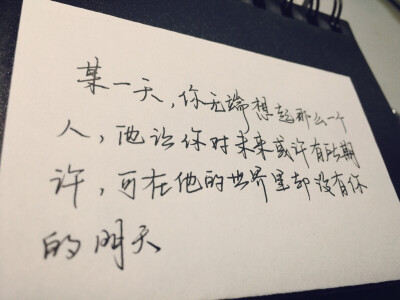 某一天，你无端想起那么一个
人，他让你对未来或许有所期
许，可在他的世界里却没有你
的明天